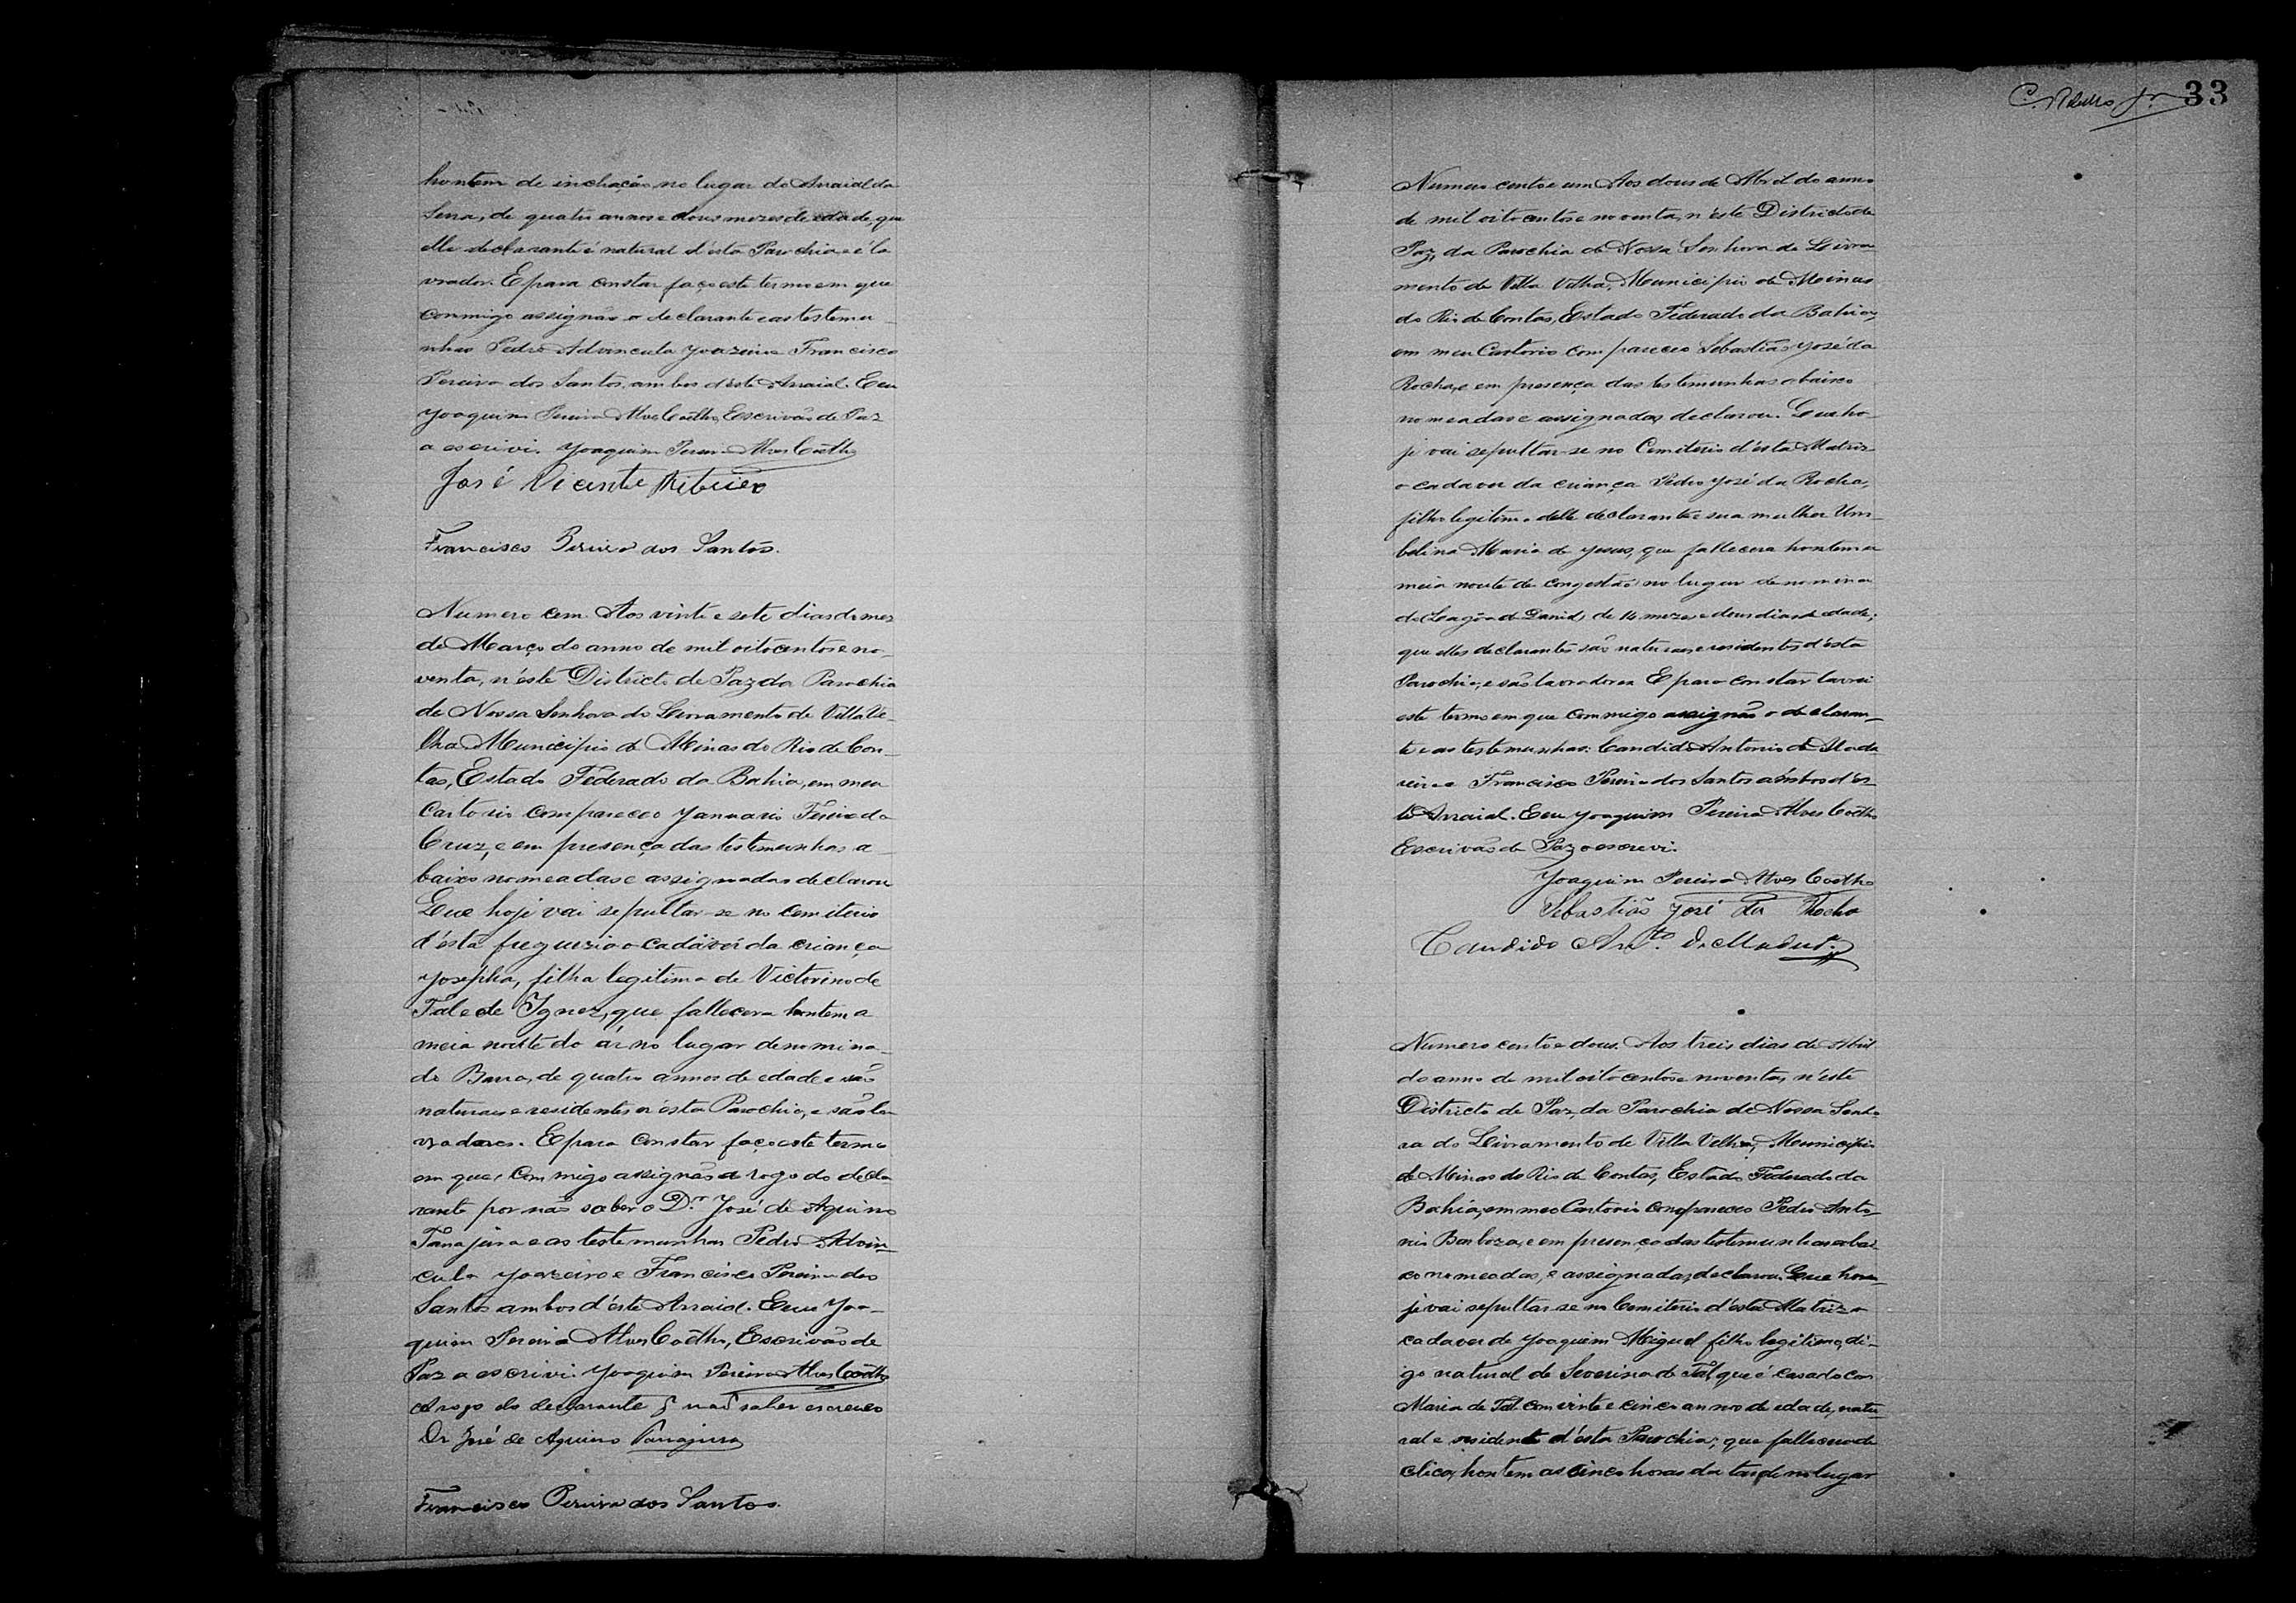 hontem de inchação no lugar do Arraial da
Serra, de quatro annos e dous mezes de edade, que
elle declarante é natural d'esta Parochia e é la
vrador. E para constar faço este termo em que
commigo assignão o declarante e as testemu-
nhas Pedro Advincula Joazeiro e Francisco
Pereira dos Santos, ambos d'este Arraial. E eu
Joaquim Pereira Alves Coêlho, Escrivão de Paz
o escrivi. Joaquim Pereira Alves Coêlho
José Vicente Ribeiro
Francisco Pereira dos Santos.
Numero cem. Aos vinte e sete dias do mez
de Março do anno de mil oitocentos e no-
venta, n'este Districto de Paz da Parochia
de Nossa Senhora do Livramento de Villa Ve-
lha Municipio de Minas do Rio de Con-
tas, Estado Federado da Bahia, em meu
Cartorio compareceo Januario Vieira da
Cruz, e em presença das testemunhas a-
baixo nomeadas e assignadas declarou
Que hoje vai sepultar-se no cemiterio
d'esta freguezia o cadáver da criança
Josepha, filha legitima de Victorino de
Tal e de Ignez, que fallecera hontem a
meia noite do ár no lugar denomina-
do Barra, de quatro annos de edade e são
naturaes e residentes n'esta Parochia, e são la
vradores. E para constar faço este termo
em que commigo assignão a rogo do decla-
rante por não saber o Dr. José de Aquino
Tanajura e as testemunhas Pedro Advin-
cula Joazeiro e Francisco Pereira dos
Santos ambos d'este Arraial. E eu Joa-
quim Pereira Alves Coêlho, Escrivão de
Paz o escrivi. Joaquim Pereira Alves Coêlho
A rogo do declarante p. não saber escrever
Dr José de Aquino Tanajura
Francisco Pereira dos Santos.
33
Numero cento e um Aos dous de Abril do anno
de mil oitocentos e noventa, n'este Districto de
Paz, da Parochia de Nossa Senhora do Livra
mento de Villa Velha, Municipio de Minas
do Rio de Contas, Estado Federado da Bahia,
em meu Cartorio compareceo Sebastião José da
Rocha, e em presença das testemunhas abaixo
nomeadas e assignadas, declarou. Que ho-
je vai sepultar-se no Cemiterio d'esta Matriz
o cadaver da criança Pedro José da Rocha,
filho legitimo delle declarante e sua mulher Um-
belina Maria de Jesus, que fallecera hontem a
meia noute de congestão no lugar denomina
do Lagôa de David, de 14 mezes e dous dias de edade,
que elles declarantes são naturaes e residentes d'esta
Parochia, e são lavradores. E para constar lavrei
este termo em que commigo assignão o declaran-
te e as testemunhas: Candido Antonio de Mada
reira e Francisco Pereira dos Santos ambos d'es-
te Arraial. E eu Joaquim Pereira Alves Coêlho
Escrivão de Paz o escrevi.
Joaquim Pereira Alves Coêlho
Sebastião José da Rocha
Candido Anto. de
Numero cento e dous. Aos treis dias de Abril
do anno de mil oitocentos e noventa, n'este
Districto de Paz, da Parochia de Nossa Senho
ra do Livramento de Villa Velha, Municipio
de Minas do Rio de Contas, Estado Federado da
Bahia, em meo Cartorio compareceo Pedro Anto-
nio Barboza, e em presença das testemunhas abai
xo nomeadas, e assignadas, declarou. Que ho-
je vai sepultar-se no Cemiterio d'esta Matriz o
cadaver de Joaquim Miguel filho legitimo, di-
go natural de Severina de Tal que é casado com
Maria de Tal com vinte e cinco annos de edade, natu-
ral e residente d'esta Parochia, que falleceo de
clica, hontem as cinco horas da tarde no lugar